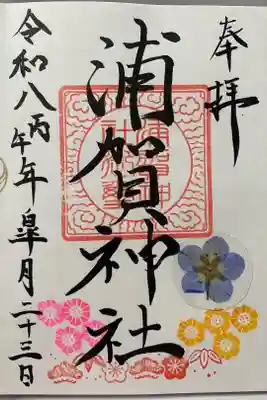 奉拝
浦賀神社
令和八丙午年皐月二十三日